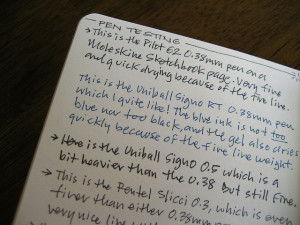 PEN TESTING
→ This is the Pilot G2 0.38mm pen on a
Moleskine Sketchbook page. Very fine
and quick drying because of the fine line.
This is the Uniball Signo RT 0.38mm pen
which I quite like! The blue ink is not too
blue nor too black, and the gel also dries
quickly because of the fine line weight.
→ Here is the Uniball Signo 0.5 which is a
bit heavier than the 0.38 but still fine.
→ This is the Pentel Slicci 0.3, which is even
finer than either 0.38mm
very nice